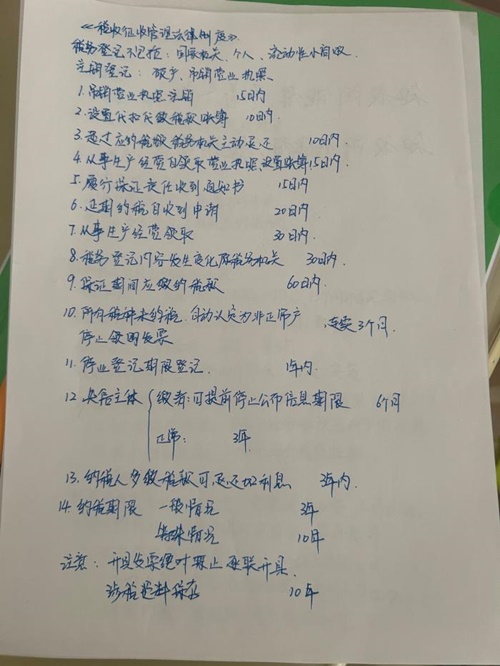 《税收征收管理法律制度》
税务登记不包括：国家机关、个人、流动性小商贩
注销登记：破产、吊销营业执照
1.吊销营业执照注销 15日内
2.设置代扣代缴税款账簿 10日内
3.超过应纳税额税务机关主动退还 10日内
4.从事生产经营自领取营业执照，设置账簿15日内
5.履行保证责任收到通知书 15日内
6.延期纳税自收到申请 20日内
7.从事生产经营领取 30日内
8.税务登记内容发生变化原税务机关 30日内
9.保证期间应缴纳税款 60日内
10.所有税种未纳税，自动认定为非正常户，连续3个月
停止领用发票
11.停业登记期限登记 1年内
12.失信主体 缴者：可提前停止公布信息期限 6个月
正常： 3年
13.纳税人多缴税款可退还加利息 3年内
14.纳税期限 一般情况 3年
特殊情况 10年
注意：开具发票 禁止 联开具
涉税资料保存 10年